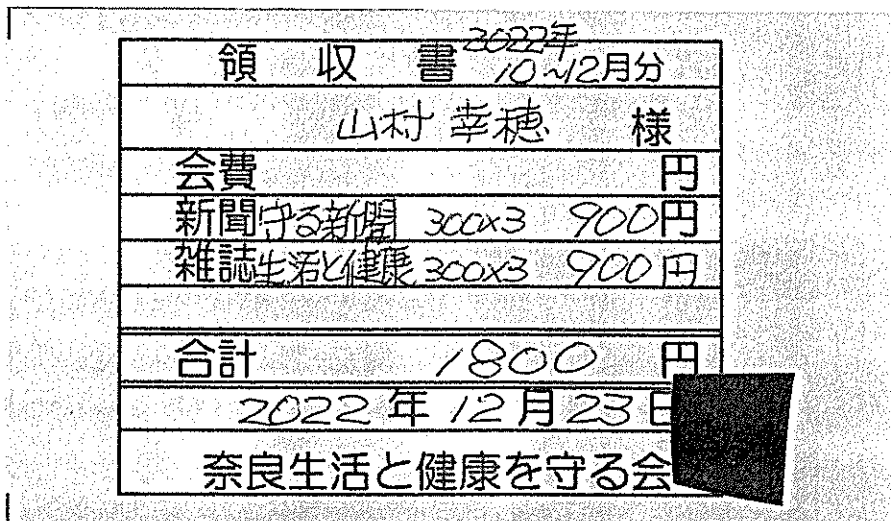 2022年
領収書 10~12月分
山村 幸穂 様
会費 円
新聞 守る新聞 300×3 900円
雑誌 生活と健康 300×3 900円
合計 1800 円
2022年12月23日
奈良生活と健康を守る会